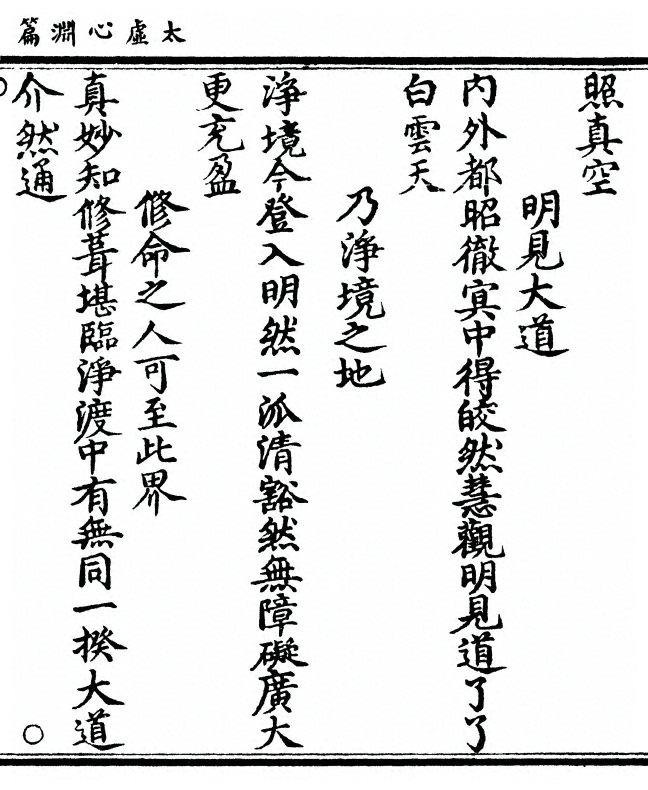 太虛心淵篇
照真空
明見大道
內外都昭徹㝠中得皎然慧觀明見道了了
白雲天
乃淨境之地
淨境今登入明然一泒清豁然無障礙廣大
更充盈
修命之人可至此界
真妙知修葺堪臨淨渡中有無同一揆大道
介然通